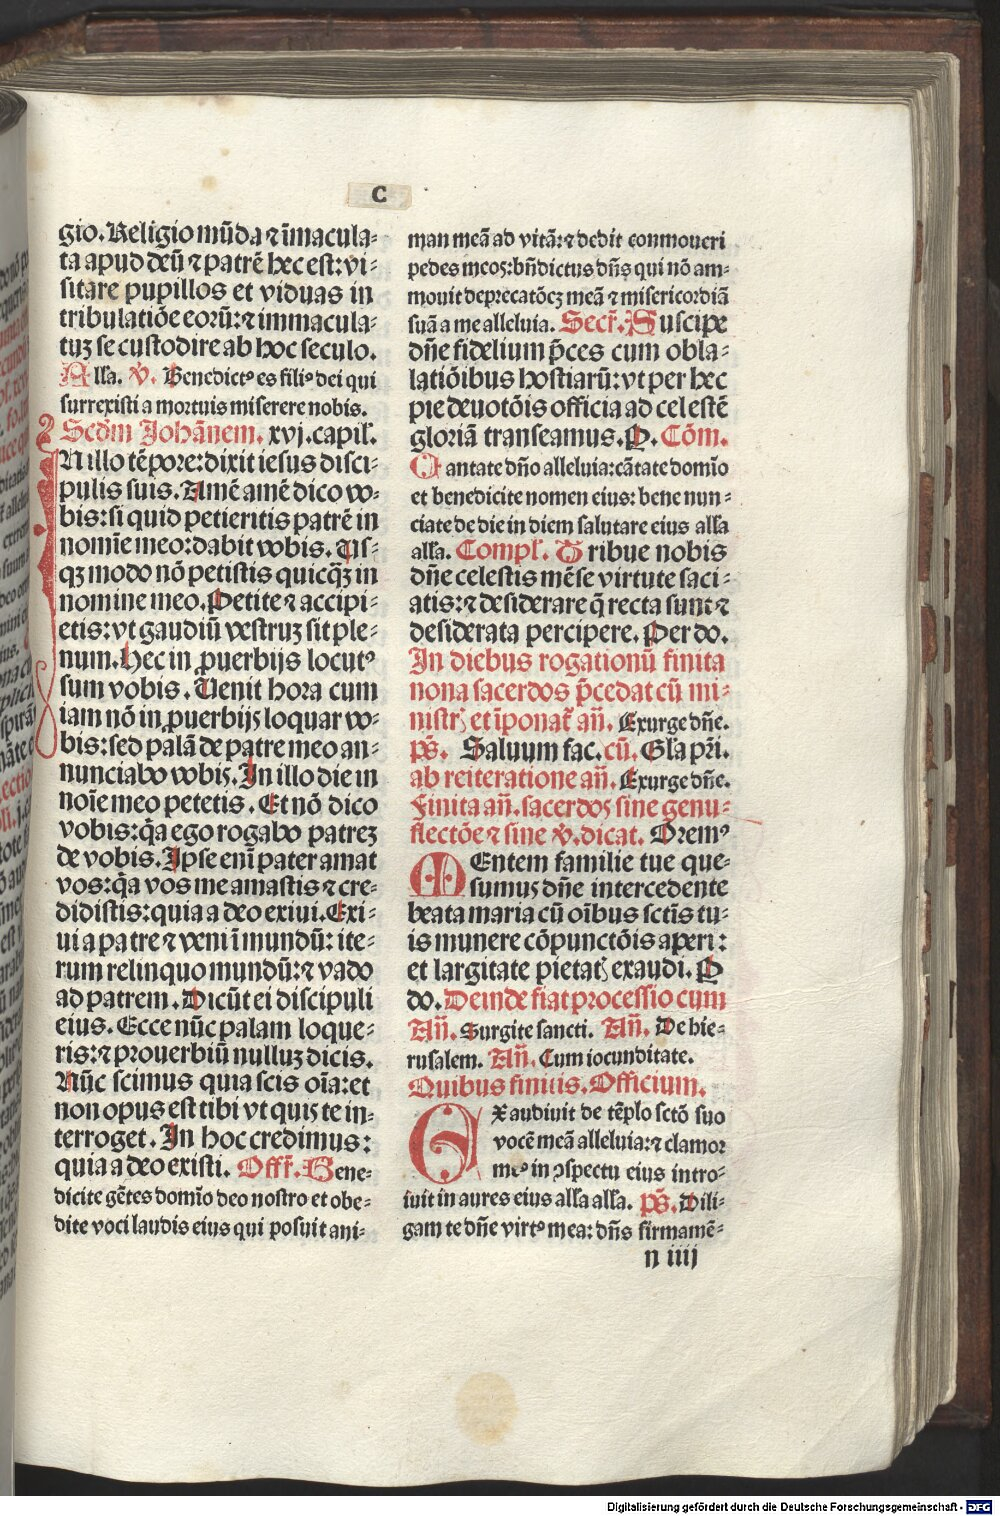 C
gio. Religio mūda ⁊ īmacula-
ta apud deū ⁊ patrē hec est: vi-
sitare pupillos et viduas in
tribulatiōe eorū: ⁊ immacula-
tuʒ se custodire ab hoc seculo.
Alla. ℣. Benedictꝰ es filiꝰ dei qui
surrexisti a mortuis miserere nobis.
Scdm Johānem. xvj. capil.
IN illo tēpore: dixit iesus disci-
pulis suis. Amē amē dico vo-
bis: si quid petieritis patrē in
nomīe meo: dabit vobis. Us-
qʒ modo nō petistis quicq̄ʒ in
nomine meo. Petite ⁊ accipi-
etis: vt gaudiū vestruʒ sit ple-
num. Hec in ꝓuerbijs locutꝰ
sum vobis. Uenit hora cum
iam nō in ꝓuerbijs loquar vo-
bis: sed palā de patre meo an-
nunciabo vobis. In illo die in
noīe meo petetis. Et nō dico
vobis: q̄a ego rogabo patreʒ
de vobis. Ipse enī pater amat
vos: q̄a vos me amastis ⁊ cre-
didistis: quia a deo exiui. Exi-
ui a patre ⁊ veni ī mundū: ite-
rum relinquo mundū: ⁊ vado
ad patrem. Dicūt ei discipuli
eius. Ecce nūc palam loque-
ris: ⁊ prouerbiū nulluʒ dicis.
Nūc scimus quia scis oīa: et
non opus est tibi vt quis te in-
terroget. In hoc credimus:
quia a deo existi. Offr̄. Bene-
dicite gētes domīo deo nostro et obe-
dite voci laudis eius qui posuit ani-
man meā ad vitā: ⁊ dedit conmoueri
pedes meos: bn̄dictus dn̄s qui nō am-
mouit deprecatōeʒ meā ⁊ misericordiā
suā a me alleluia. Secr̄. Suscipe
dn̄e fidelium p̄ces cum obla-
latiōibus hostiarū: vt per hec
pie deuotōis officia ad celestē
gloriā transeamus. P. Cōm.
Cantate dn̄o alleluia: cātate domīo
et benedicite nomen eius: bene nun-
ciate de die in diem salutare eius alla
alla. Compl. Tribue nobis
dn̄e celestis mēse virtute saci-
atis: ⁊ desiderare q̄ recta sunt ⁊
desiderata percipere. Per do.
In diebus rogationū finita
nona sacerdos p̄cedat cū mi-
nistrꝭ et īponat̄ an̄. Exurge dn̄e.
ps̄. Saluum fac. cū. Gla pr̄i.
ab reiteratione an̄. Exurge dn̄e.
Finita an̄. sacerdos sine genu-
flectōe ⁊ sine ℣. dicat. Oremꝰ
MEntem familie tue que-
sumus dn̄e intercedente
beata maria cū oībus sctīs tu-
is munere cōpunctōis aperi:
et largitate pietatꝭ exaudi. P
do. Deinde fiat processio cum
An̄. Surgite sancti. An̄. De hie-
rusalem. An̄. Cum iocunditate.
Quibus finitis. Officium.
Exaudiuit de tēplo sctō suo
vocē meā alleluia: ⁊ clamor
meꝰ in ꝯspectu eius intro-
iuit in aures eius alla alla. ps̄. Dili-
gam te dn̄e virtꝰ mea: dn̄s firmamē-
n iiij
Digitalisierung gefördert durch die Deutsche Forschungsgemeinschaft - DFG